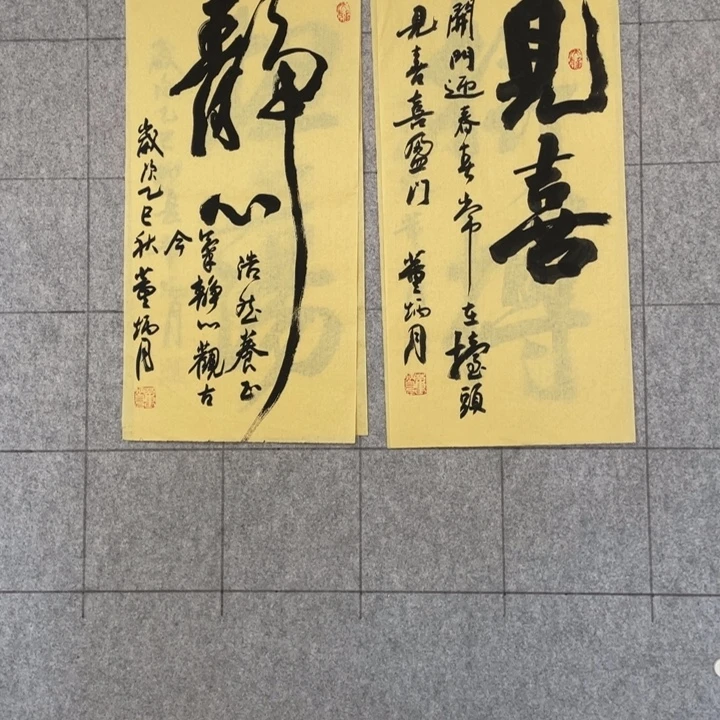 見喜
開門迎春春常在擡頭
見喜喜盈门 董炳月
靜心
浩然養正
氣靜心觀古
今
歲次乙巳秋 董炳月